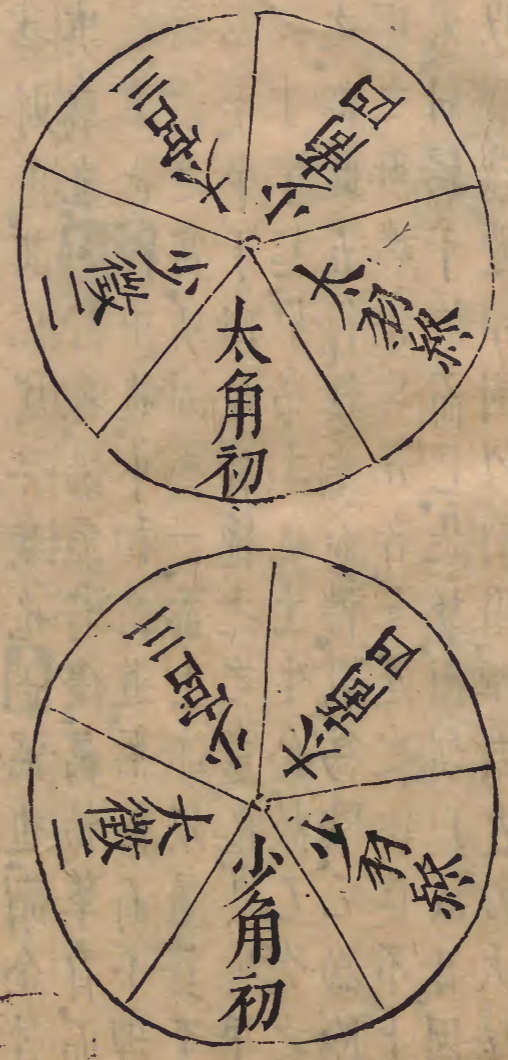 太角初
少徵二
太宮三
少商四
太羽終
少角初
太徵二
少宮三
太商四
少羽終